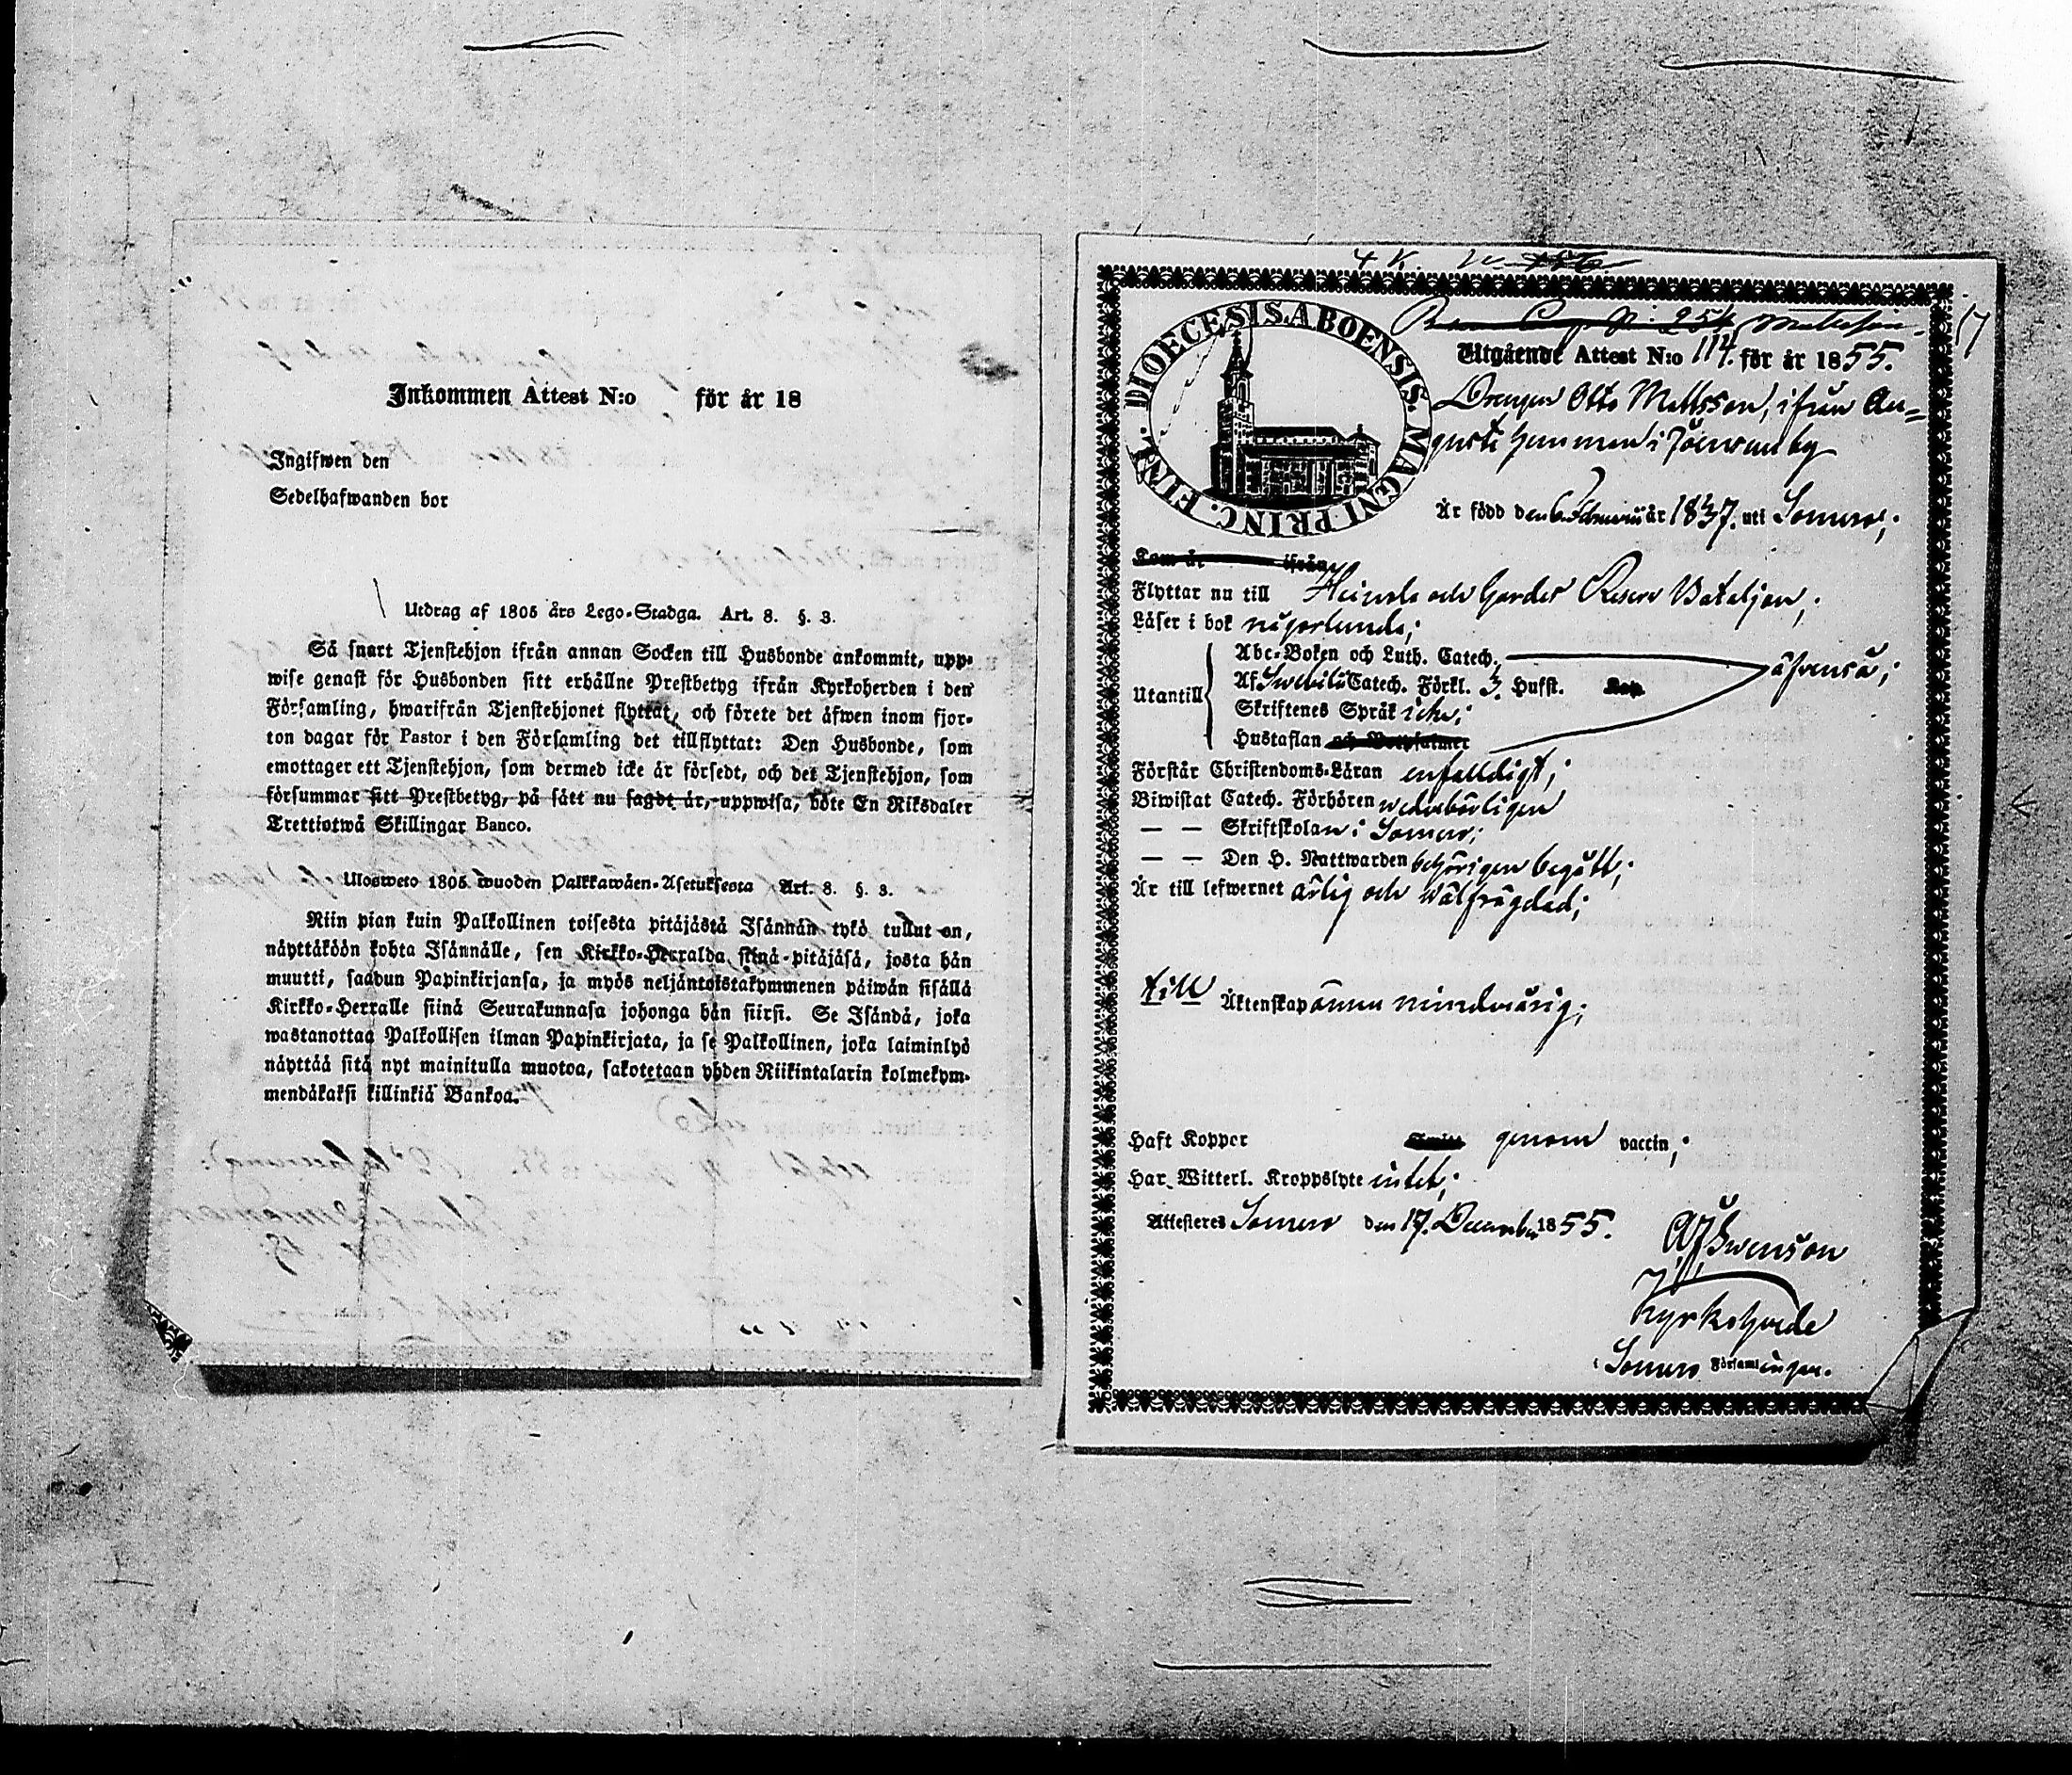 Inkommen Attest N:o för år 18
Ingifwen den
Sedelhafwanden bor
Utdrag af 1805 års Lego-Stadga. Art. 8. §. 3.
Så snart Tjenstehjon ifrån annan Socken till Husbonde ankommit, upp-
wise genast för Husbonden sitt erhållne Prestbetyg ifrån Kyrkoherden i den
Församling, hwarifrån Tjenstehjonet flyttat, och förete det äfwen inom fjor-
ton dagar för Pastor i den Församling det tillflyttat: Den Husbonde, som
emottager ett Tjenstehjon, som dermed icke är försedt, och det Tjenstehjon, som
försummar sitt Prestbetyg, på sätt nu sagdt är, uppwisa, böte En Riksdaler
Trettiotwå Skillingar Banco.
Ulosweto 1805 wuoden Palkkawäen-Asetuksesta Art. 8. §. 3.
Niin pian kuin Palkollinen toisesta pitäjästä Isännän tykö tullut on,
näyttäköön kohta Isännälle, sen Kirkko-Herralda siinä pitäjäsä, josta hän
muutti, saadun Papinkirjansa, ja myös neljäntoistakymmenen päiwän sisällä
Kirkko-Herralle siinä Seurakunnasa johonga hän siirsi. Se Isändä, joka
wastanottaa Palkollisen ilman Papinkirjata, ja se Palkollinen, joka laiminlyö
näyttää sitä nyt mainitulla muotoa, sakotetaan yhden Riikintalarin kolmekym-
mendäkaksi killinkiä Bankoa.
4 K.
254
17
DIOECESIS ABOENSIS. MAGNI PRINC. FINL.
Utgående Attest N:o 114. för år 1855.
Drengen Otto Mattsson, ifrån Au-
gusti hemman i by
Är född den 6 Februarii år 1837. uti Somero;
Kom år ifrån
Flyttar nu till Heinola och Gardes Reserv Bataljon;
Läser i bok någorlunda;
Utantill
Abc-Boken och Luth. Catech.
Af Svebilii Catech. Förkl. 3. Hufst.
äfvenså;
Skriftenes Språk icke;
Hustaflan och Botpsalmer
Förstår Christendoms-Läran enfaldigt;
Biwistat Catech. Förhören wederbörligen
— — Skriftskolan i Somero;
— — Den H. Nattwarden behörigen begått;
Är till lefwernet ärlig och wälfrägdad;
till Äktenskap ännu minderårig;
Haft Kopper genom vaccin;
Har Witterl. Kroppslyte intet;
Attesteres Somero den 17. December 1855.
Swenson
Kyrkoherde
i Somero Församlingen.